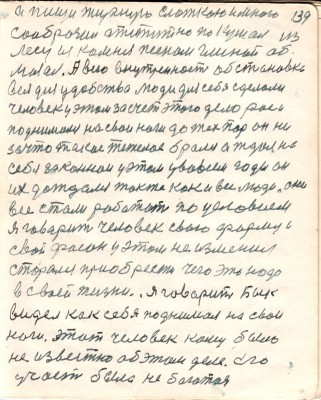 и пищи жирную сладкою и много 139
сообразил апитит но покушал из
лесу из камня песком глиной об
мазал. А всю внутренност обстановка
вся для удобства люди для себя сделали
человек у этом за счет этого дело
поднимали на свои ноги до тех пор он ни
за что такое тяжелое брали а ждал на
себя законном у этом у во всем годы он
их дождали так то как и все люди, они
все стали работат по условием
Я говорит человек свою форму и
свой фасон у этом не изменил
старалис приобрести чего это надо
в своей жизни. Я говорит Бык
видел как себя поднимал на свои
ноги. Этот человек кому было
не известно об этом деле. Его
участ была не богатая